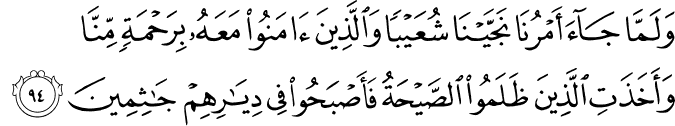 وَلَمَّا جَآءَ أَمْرُنَا نَجَّيْنَا شُعَيْبًا وَٱلَّذِينَ ءَامَنُوا۟ مَعَهُۥ بِرَحْمَةٍ مِّنَّا
وَأَخَذَتِ ٱلَّذِينَ ظَلَمُوا۟ ٱلصَّيْحَةُ فَأَصْبَحُوا۟ فِى دِيَـٰرِهِمْ جَـٰثِمِينَ ٩٤